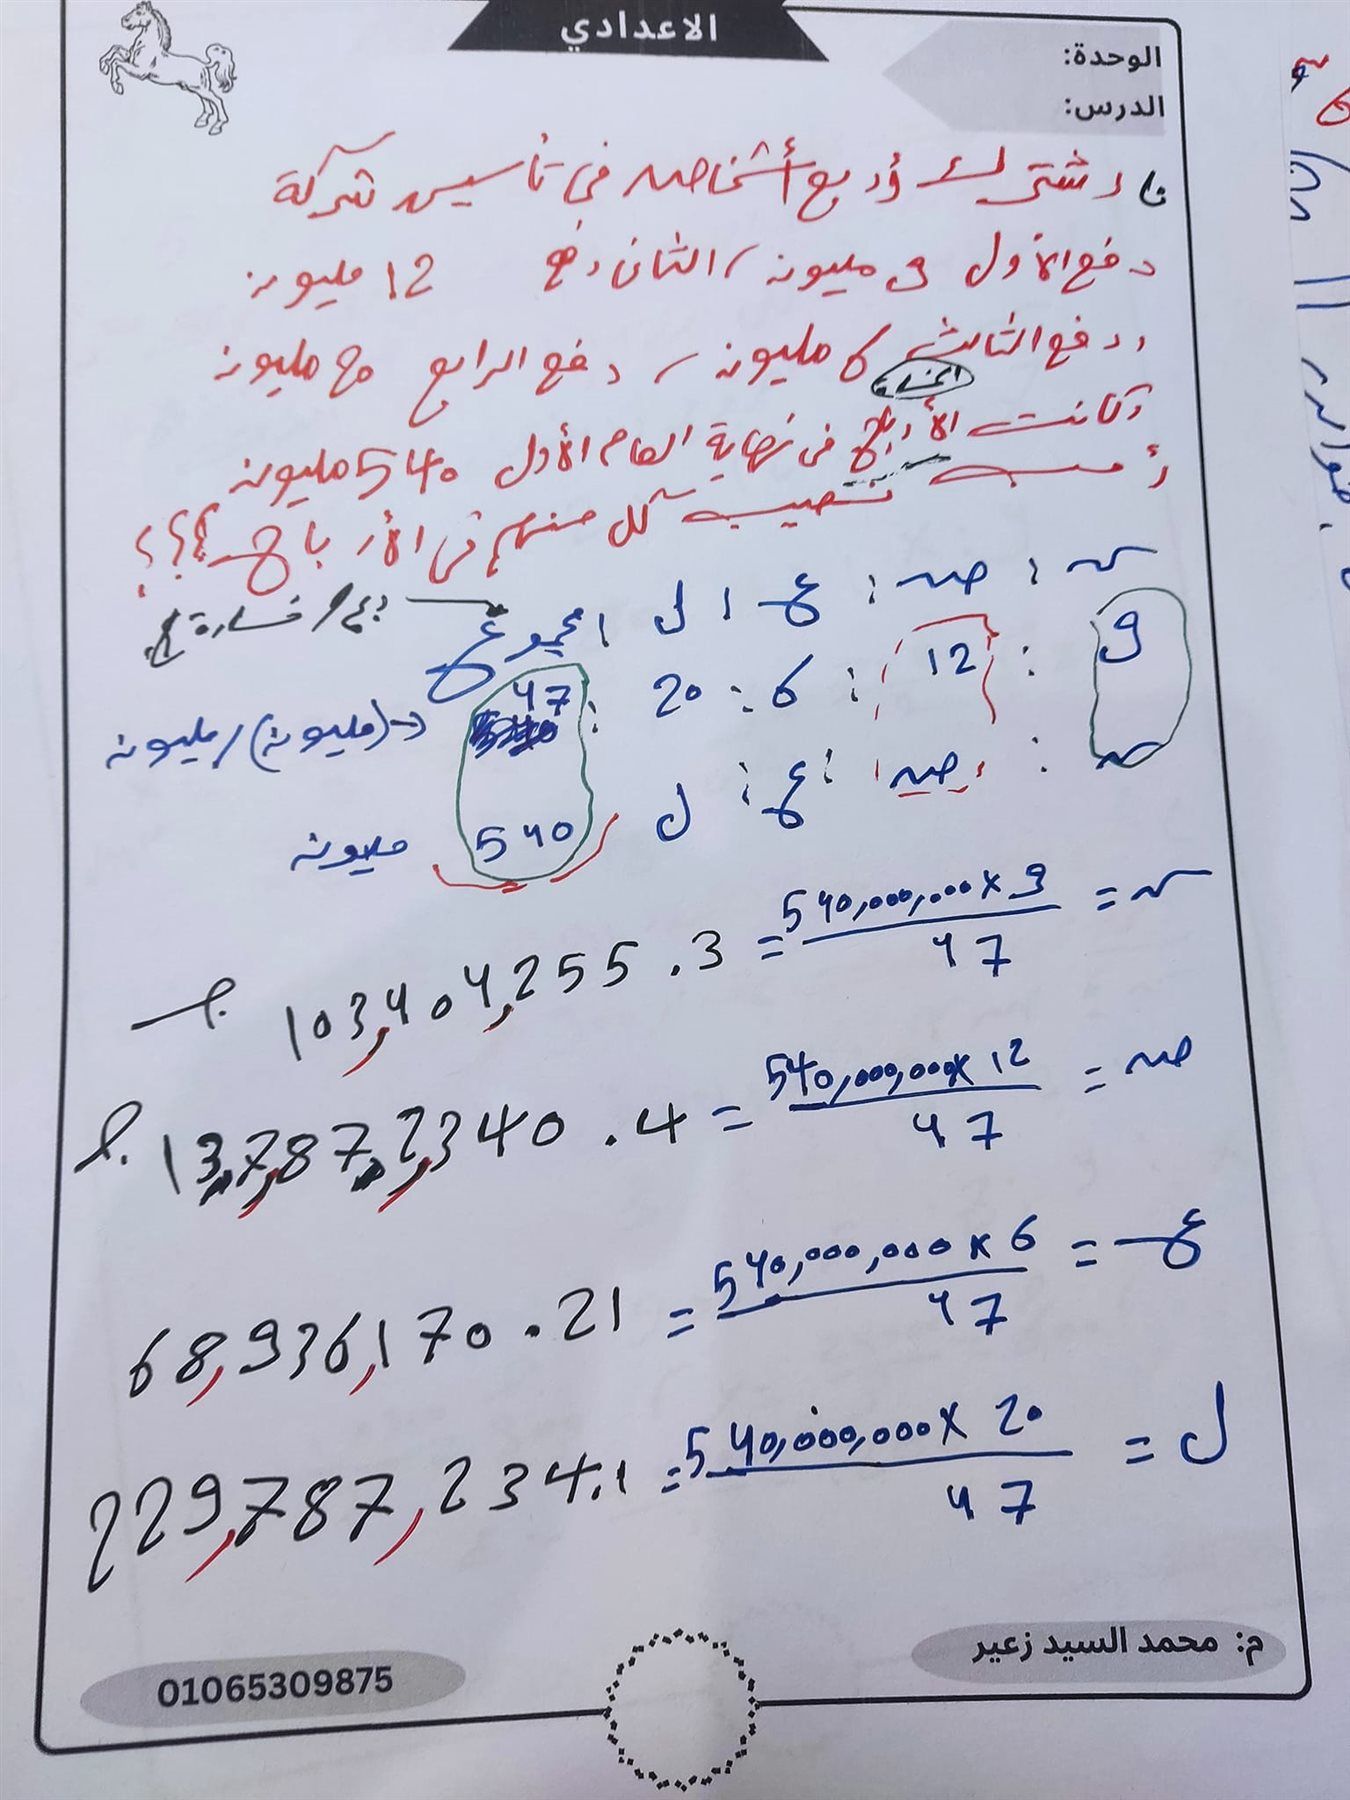 الاعدادي
الوحدة:
الدرس:
اشترك أربع أشخاص في تأسيس شركة
دفع الأول 9 مليون / الثاني دفع 12 مليون
ودفع الثالث 6 مليون / دفع الرابع 20 مليون
الخسارة
وكانت الأرباح في نهاية العام الأول 540 مليون
أحسب نصيب كل منهم في الأرباح ؟؟؟
س : ص : ع : ل : مجموع
9 : 12 : 6 : 20 : 47 د(مليون)/مليون
س : ص : ع : ل 540 مليون
س = 540,000,000 x 9 / 47 = 103,404,255.3
ص = 540,000,000 x 12 / 47 = 13,7,87,2,340.4
ع = 540,000,000 x 6 / 47 = 68,936,170.21
ل = 540,000,000 x 20 / 47 = 229,787,234.1
م: محمد السيد زعير
01065309875